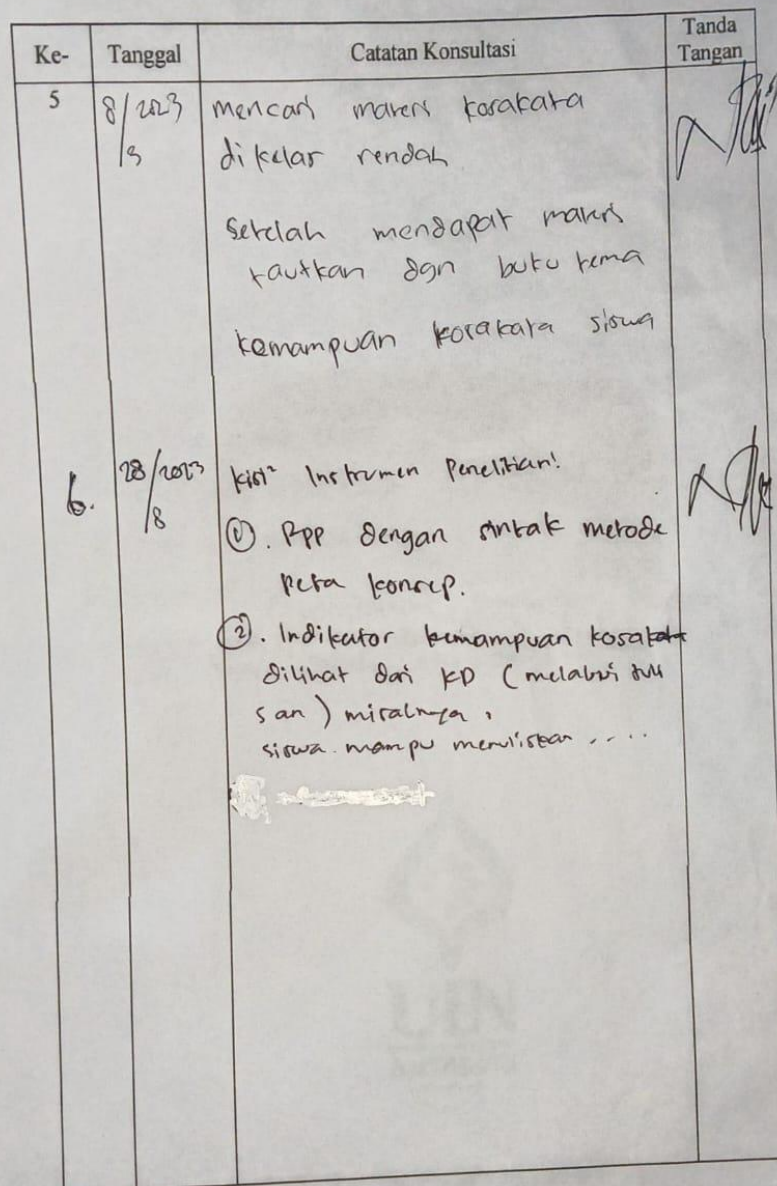 Ke- Tanggal Catatan Konsultasi Tanda Tangan
5 8/3 2023 mencari materi kosakata
di kelas rendah
Setelah mendapat materi
tautkan dgn buku tema
kemampuan kosakata siswa
6. 28/8 2023 kisi² Instrumen Penelitian!
①. RPP dengan sintak metode
peta konsep.
②. Indikator kemampuan kosakata
dilihat dari KD (melalui tuli
san) misalnya,
siswa mampu menuliskan .....
UIN